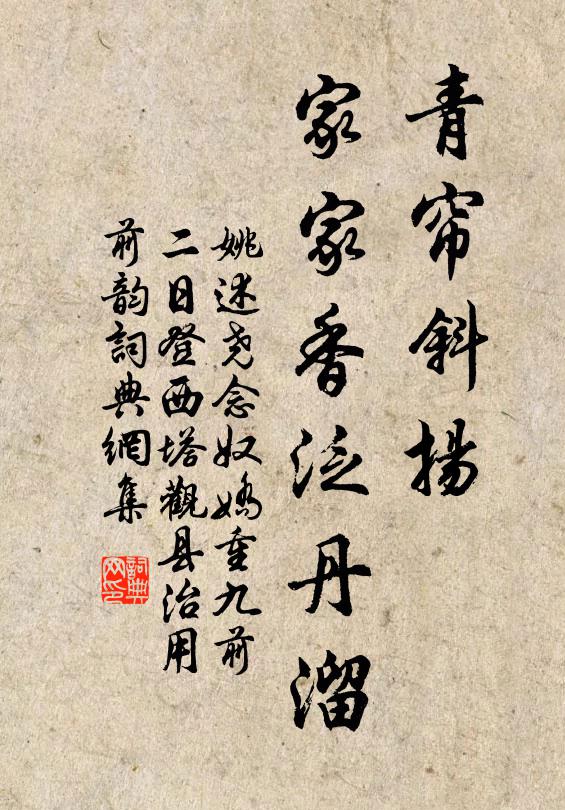 青帘斜揚
家家香泛丹溜
姚述尧念奴嬌重九前
二日登西塔觀县治用
前韵詞典網集
詞典
网印